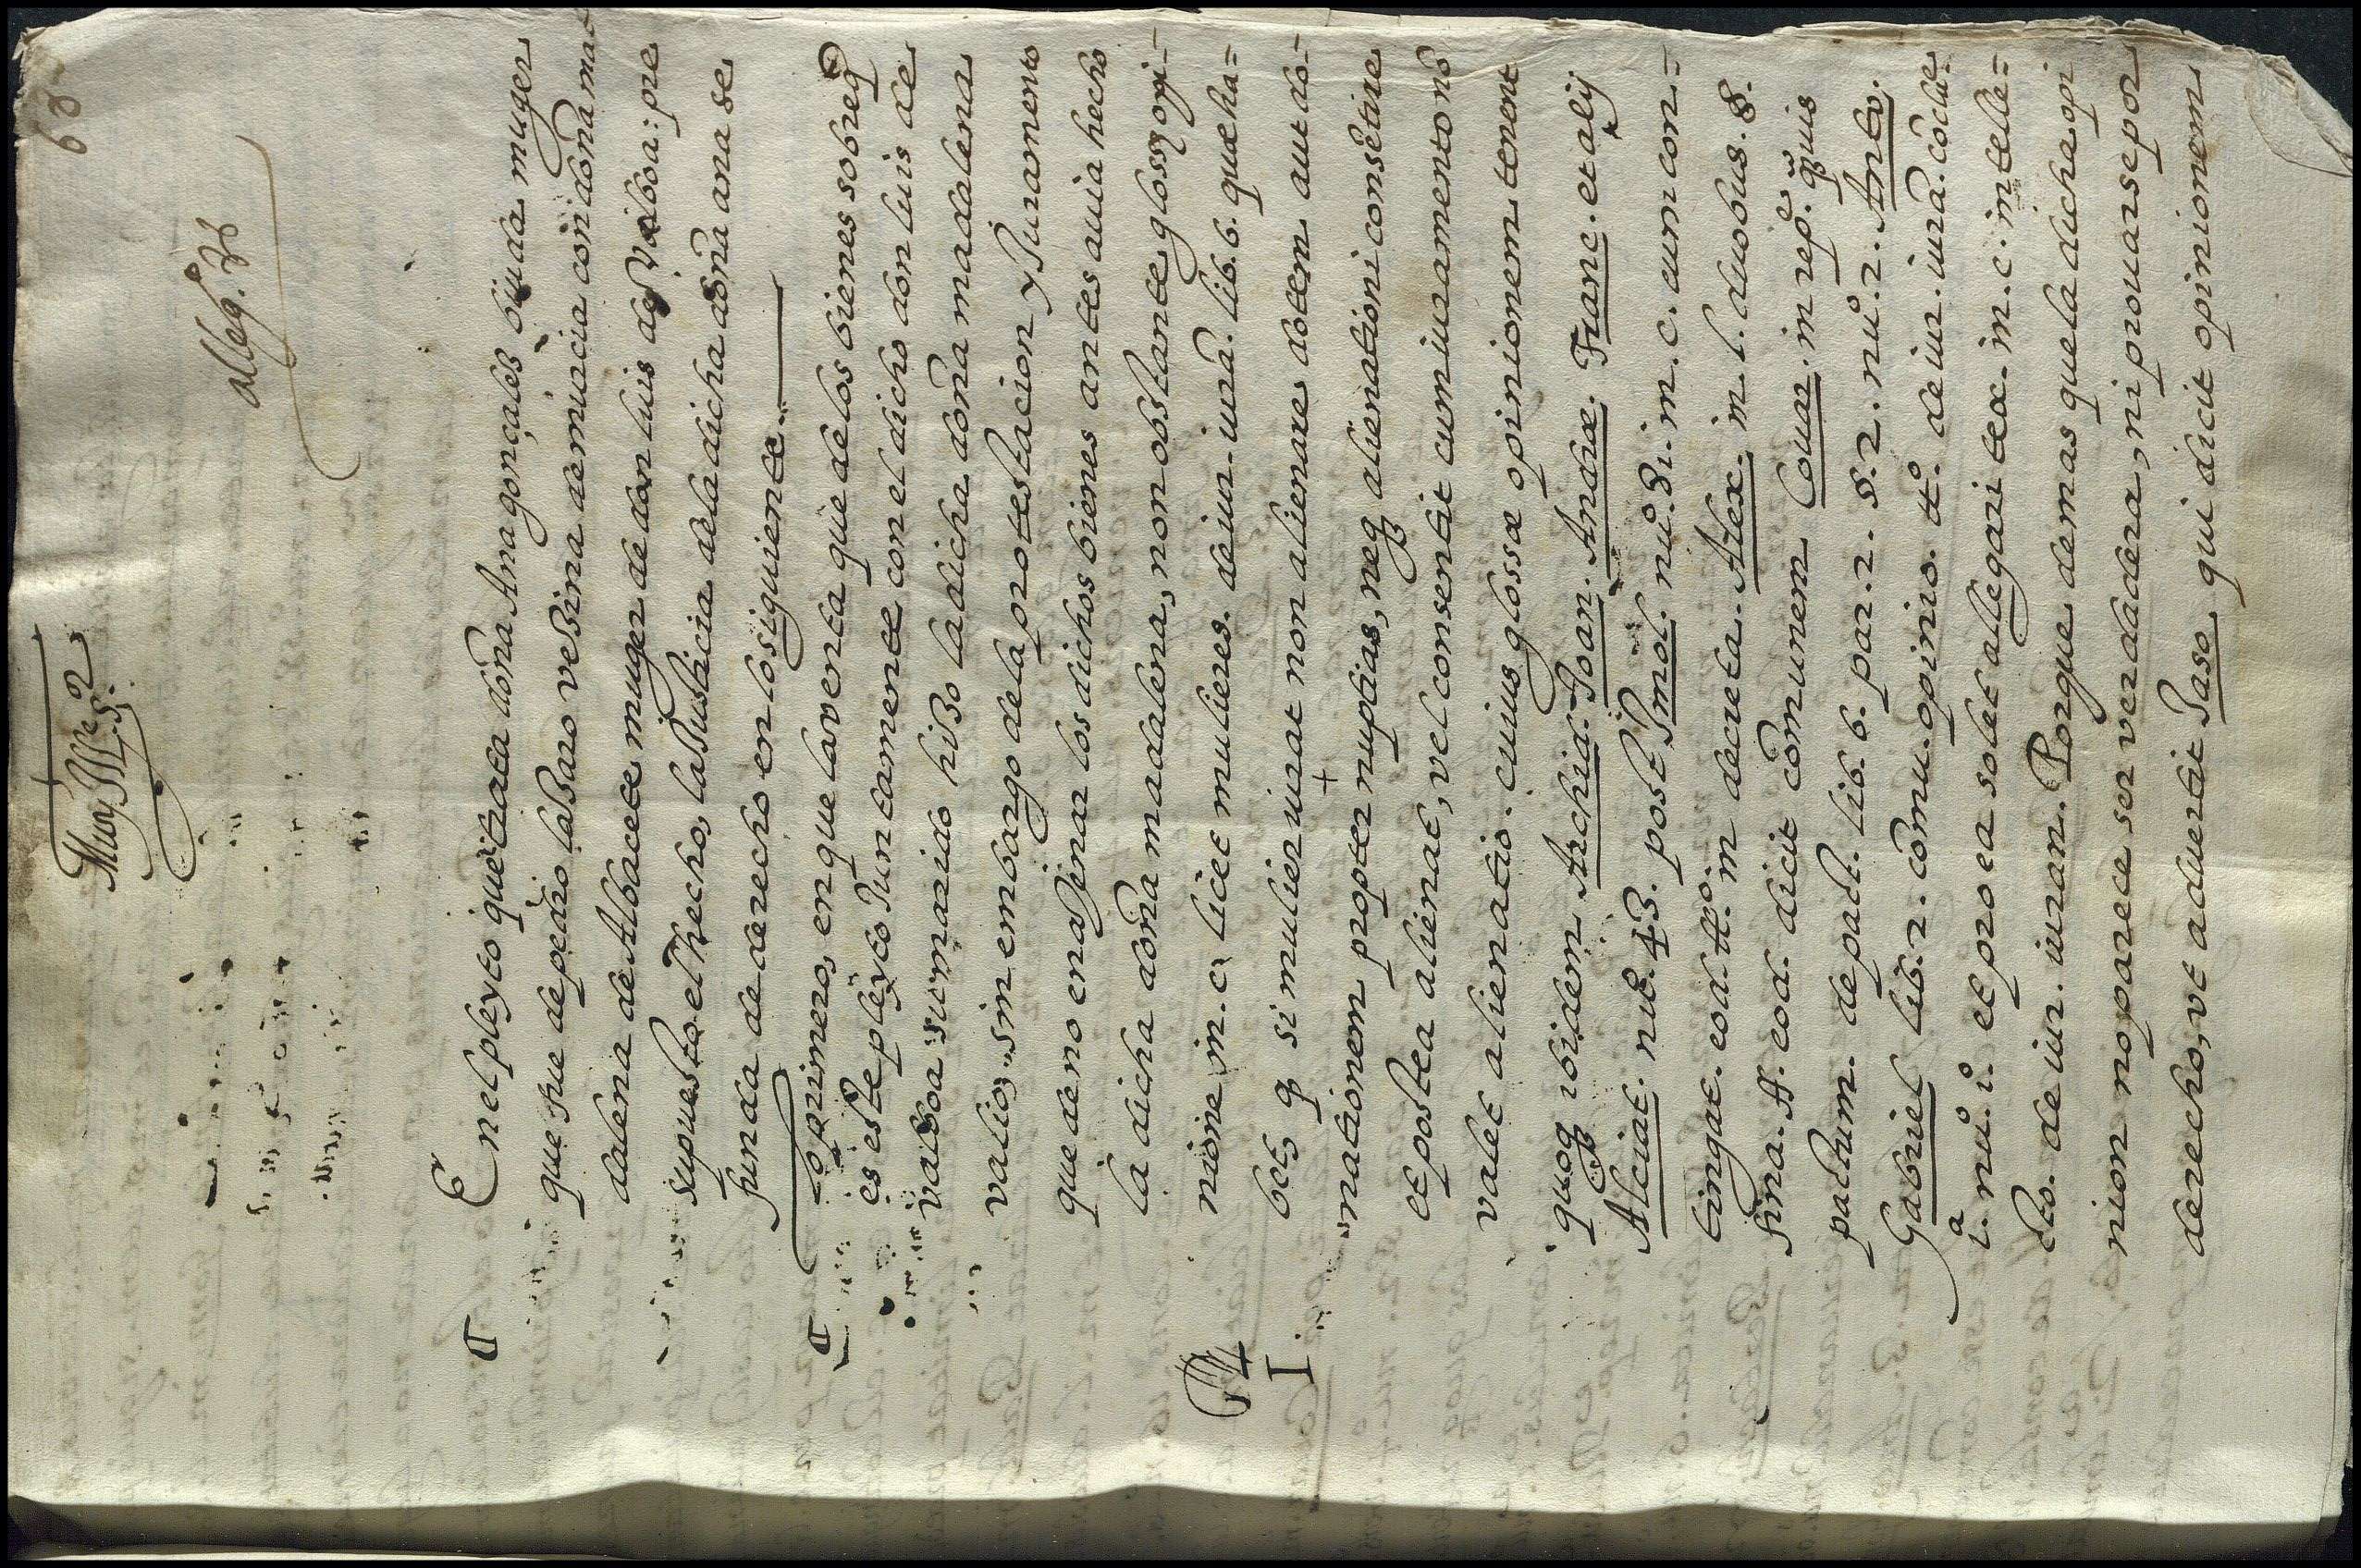 63
Muy Ill.e S.or
alleg. 36
En el pleyto que trata doña Ana gonçales biuda muger
que fue de pedro laȝaro veȝina de murcia con doña ma
dalena de Albacete muger de don luis de Valboa: pre
supuesto el hecho, la Justicia dela dicha doña ana se
funda de derecho en lo siguiente
lo primero, en que la venta que de los bienes sobre q̃
es este pleyto Juntamente con el dicho don luis de
valboa su marido hiȝo la dicha doña madalena
valio, sin embargo dela protestacion y Juramento
que de no enaJenar los dichos bienes antes auia hecho
la dicha doña madalena, non obstante gloss. opi=
nione in. c. licet mulieres. de iur. iurã. lib. 6. quæ ha=
bet, q̃ si mulier iurat non alienare dotem aut do=
nationem propter nuptias, neq₃ alienationi consẽtire
et postea alienat, vel consentit cum iuramento nõ
valet alienatio. cuius glossæ opinionem tenent
quoq₃ ibidem Archid. Ioan. Andræ. Franc. et alij
Alciat. nũ. 43. post Imol. nũ. 31. in. c. cum con=
tingat. eod. tt.o in decreta. Alex. in l. duobus. §.
fina. ff. eod. dicit cõmunem Couar. in rep.e quãuis
pactum. de pact. lib. 6. par. 2. §. 2. nũ. 2. Anto.
Gabriel lib. 2. cõmu. opinio. tt.o de iur. iurã. cõclu=
1.a nũ. 1. et pro ea solet allegari tex. in. c. intele=
cto. de iur. iuran. Porque demas que la dicha opi
nion no parece ser verdadera, ni prouarse por
derecho, vt aduertit Jaso. qui dicit opinionem
I